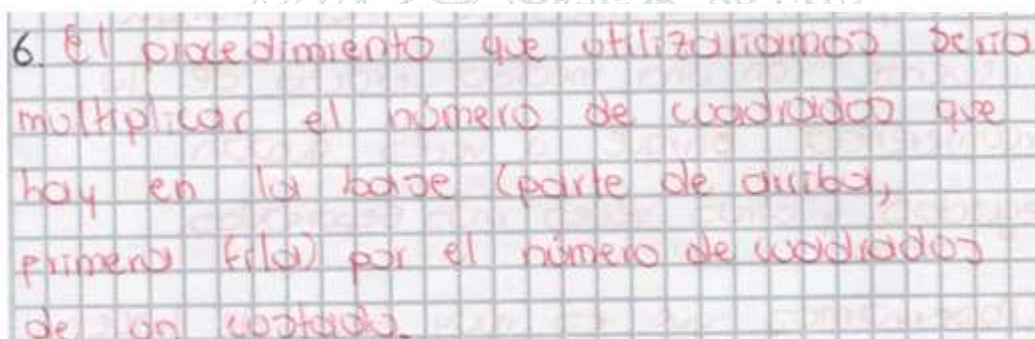 6. El procedimiento que utilizariamos seria
multiplicar el número de cuadrados que
hay en la base (parte de arriba,
primera fila) por el número de cuadrados
de un costado.